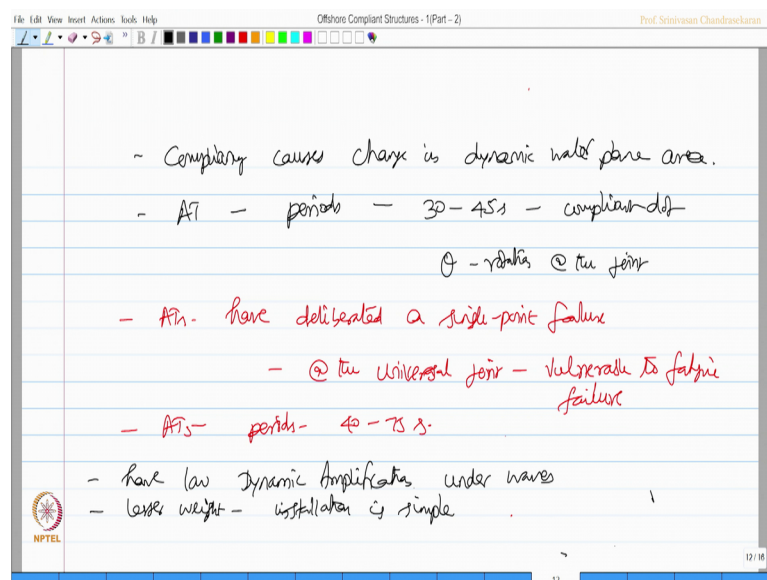 File Edit View Insert Actions Tools Help
Offshore Compliant Structures - 1(Part – 2)
Prof. Srinivasan Chandrasekaran
B I
- Compliancy causes change in dynamic water plane area.
- AT - periods - 30-45s - compliant dof
θ - rotation @ the joint
- ATs - have deliberated a single-point failure
- @ the universal joint - vulnerable to fatigue
failure
- ATs - periods - 40-75 s.
- have low Dynamic Amplification under waves
- lesser weight - installation is simple
NPTEL
12 / 16